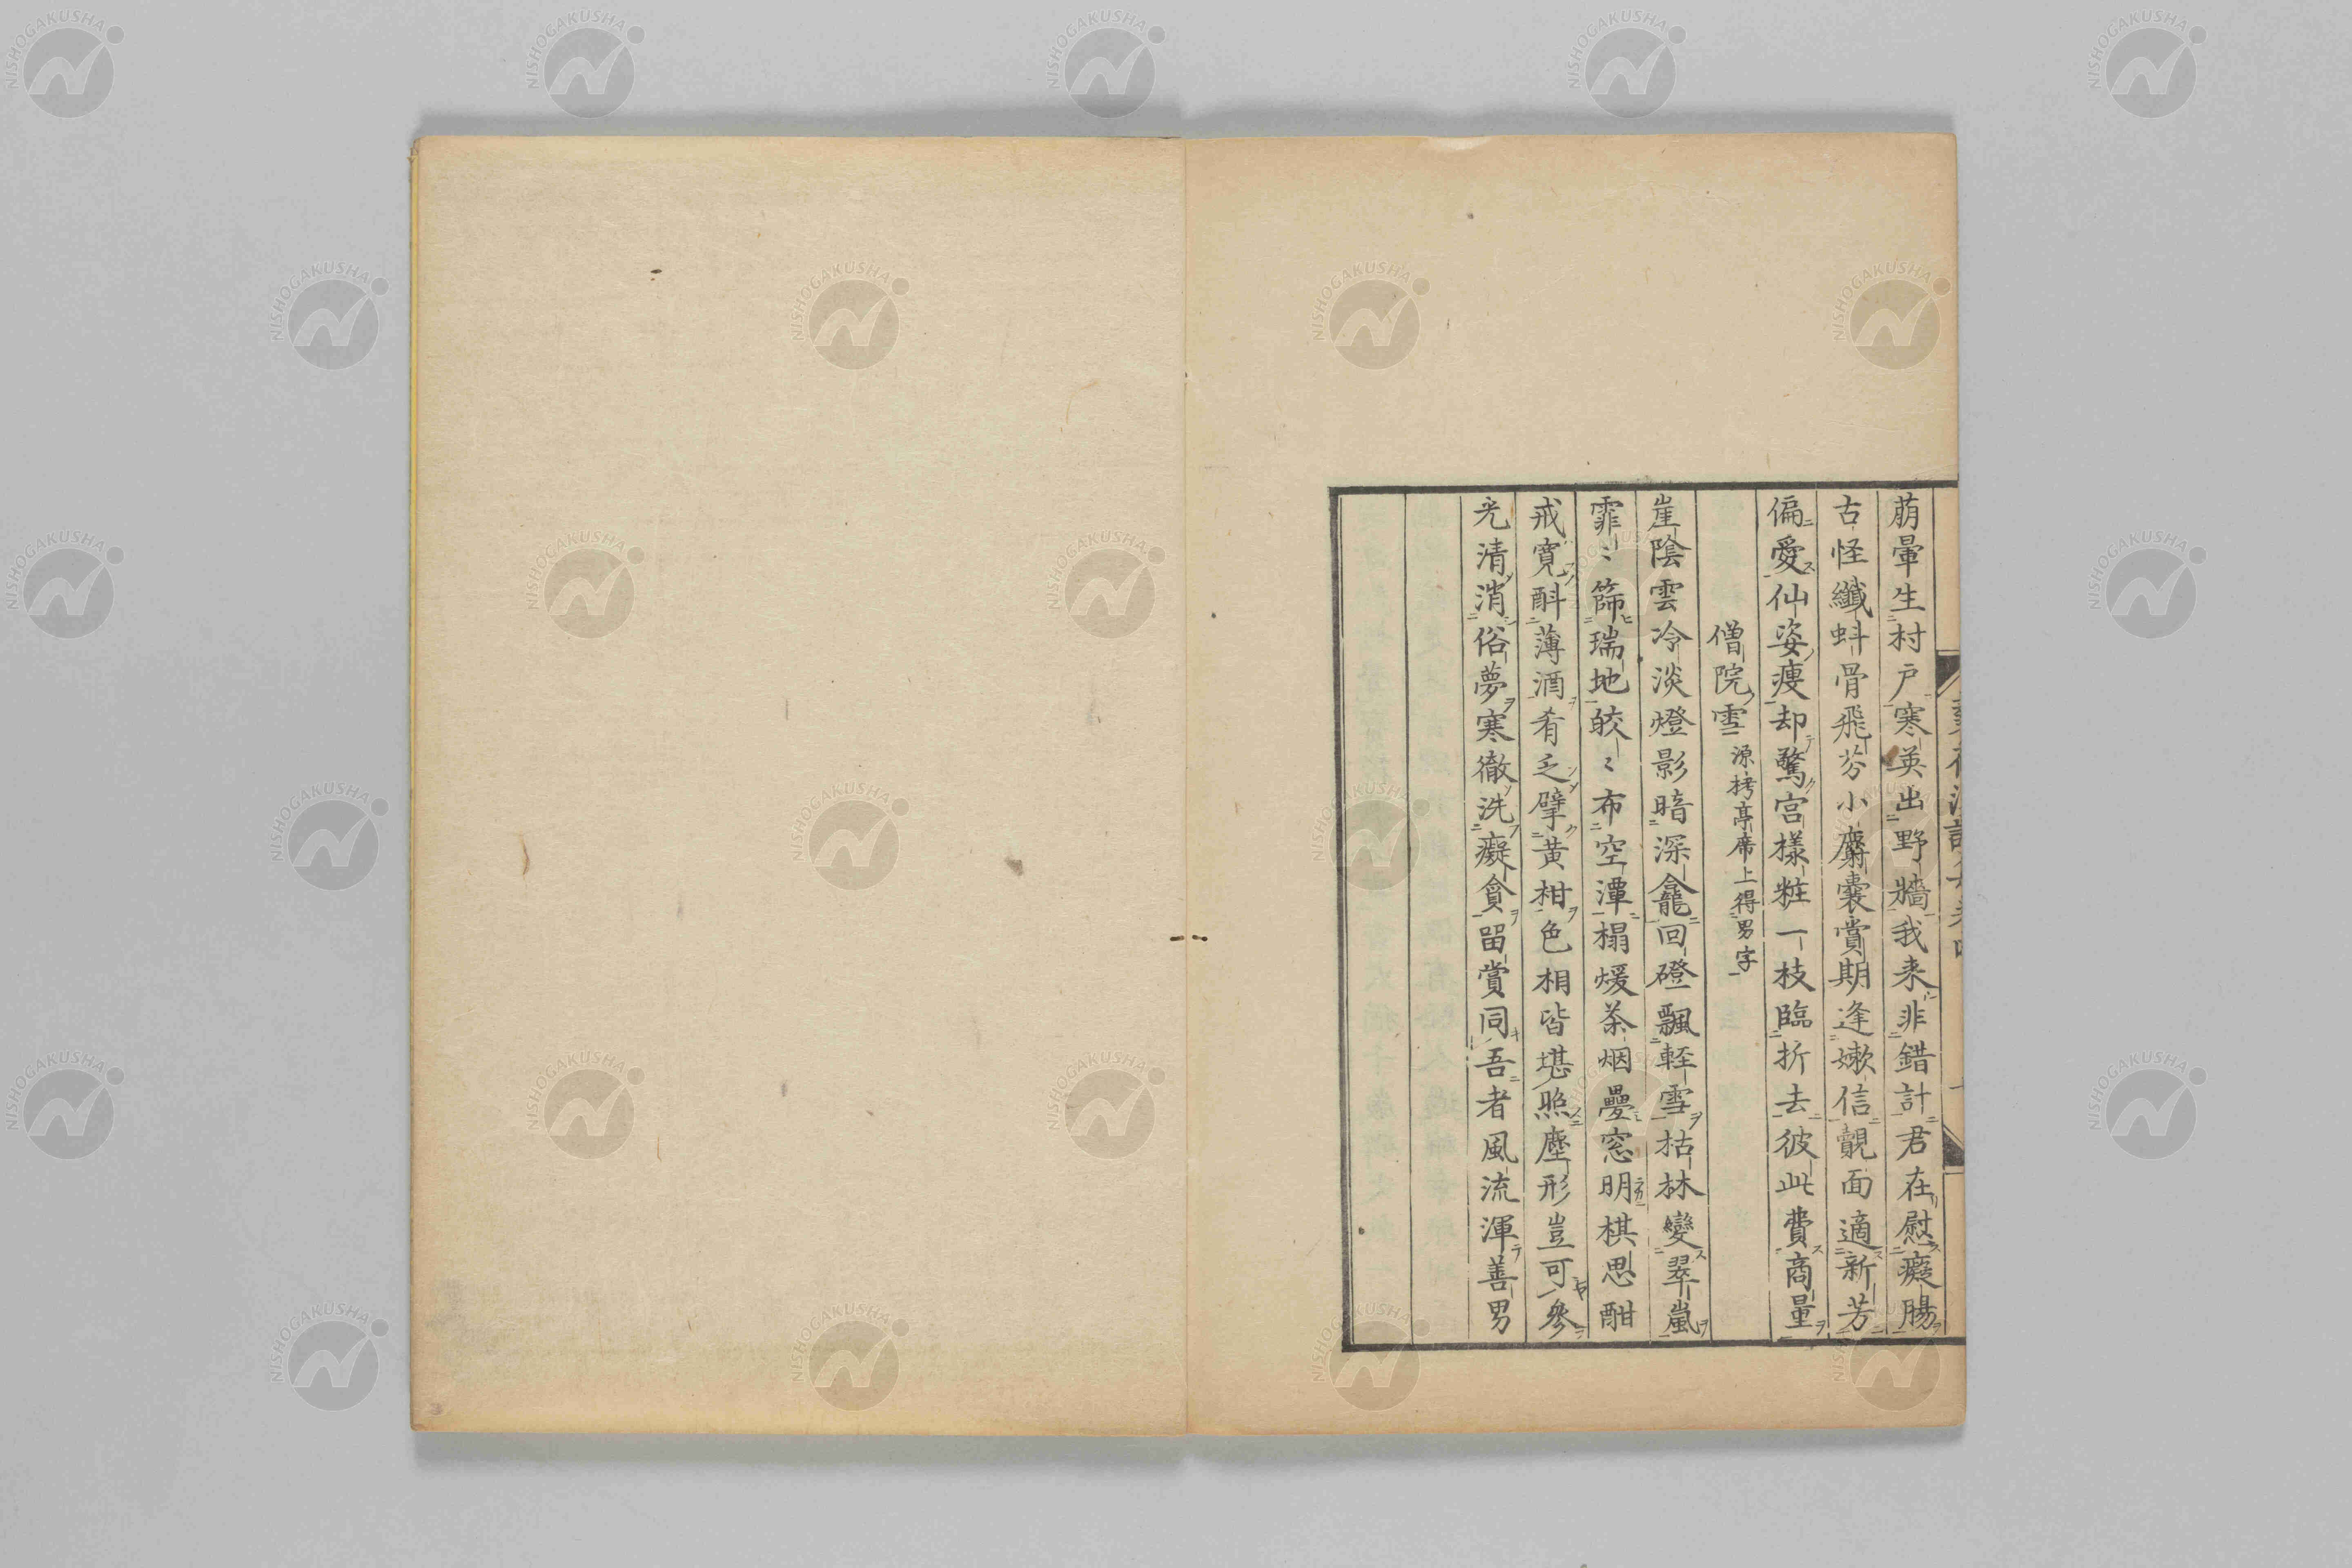 萠暈生村戸寒英出野牆我来非錯計君在慰癡腸
古怪纖蚪骨飛芬小麝囊賞期逢嫰信覿面適新芳
偏愛仙姿痩却驚宮樣粧一枝臨折去彼此費商量
僧院雪 源栲亭席上得男字
崖陰雲冷淡燈影暗深龕回磴飄軽雪枯林變翠嵐
霏〻篩瑞地皎〻布空潭榻煖茶烟疊窓明棋思酣
戒寛酙薄酒肴乏擘黄柑色相皆堪照塵形豈可參
光清消俗夢寒徹洗癡貪留賞同吾者風流渾善男
NISHOGAKUSHA